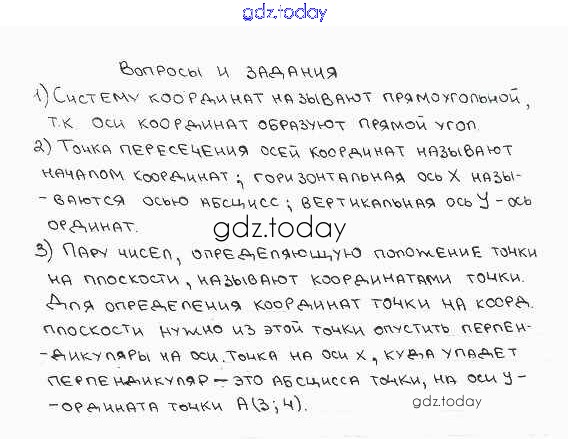 gdz.today
Вопросы и задания
1) Систему координат называют прямоугольной,
т.к оси координат образуют прямой угол.
2) Точка пересечения осей координат называют
началом координат; горизонтальная ось X назы-
-ваются осью абсцисс; вертикальная ось У-ось
ординат.
gdz.today
3) Пару чисел, определяющую положение точки
на плоскости, называют координатами точки.
Для определения координат точки на коорд.
плоскости нужно из этой точки опустить перпен-
-дикуляры на оси. Точка на оси X, куда упадет
перпендикуляр – это абсцисса точки, на оси У-
-ордината точки А(3;4).
gdz.today